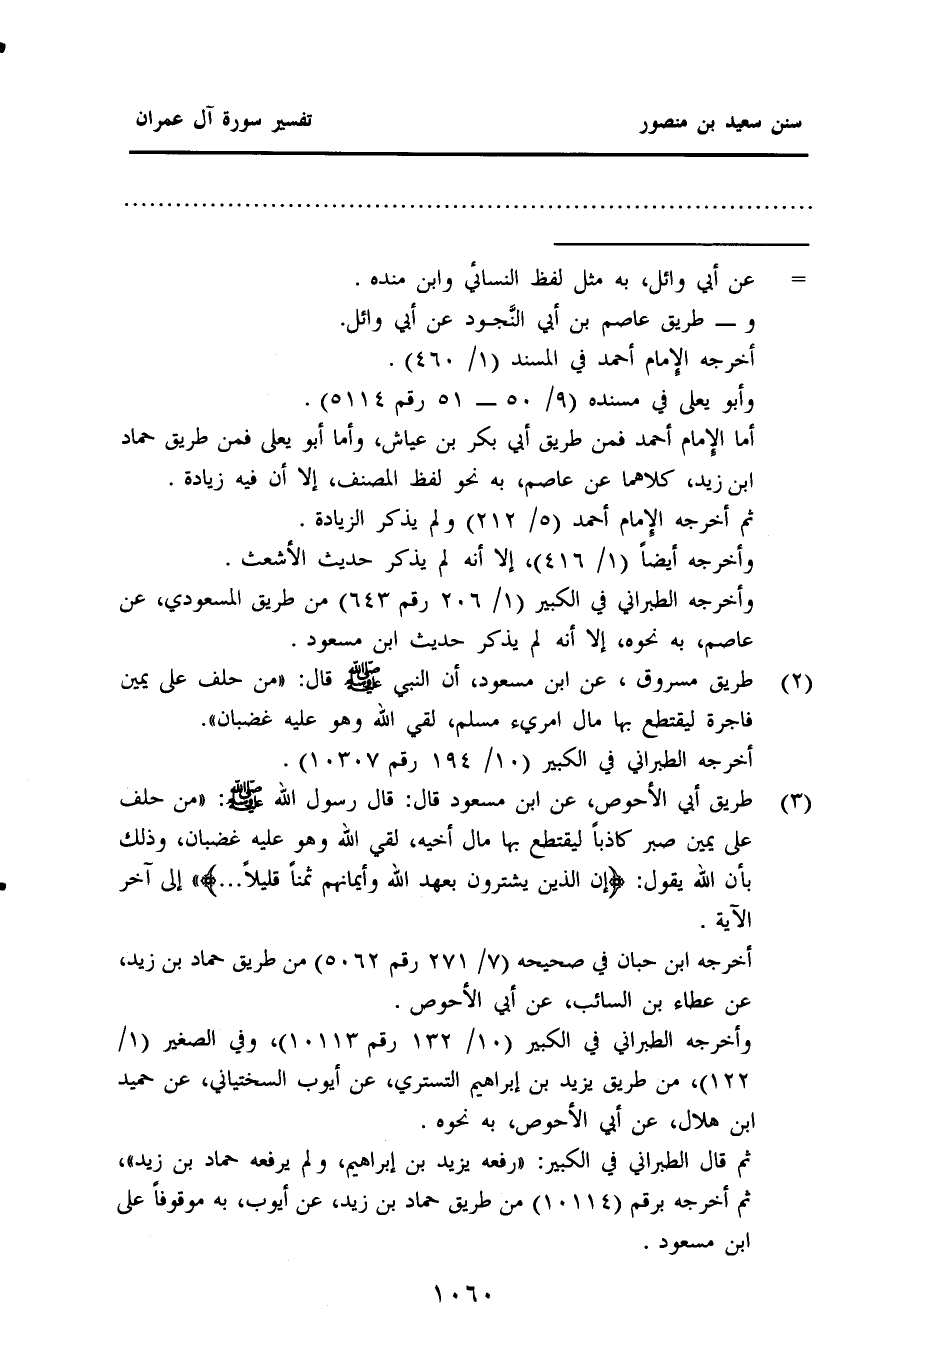 سنن سعيد بن منصور تفسير سورة آل عمران
................................................................................
= عن أبي وائل، به مثل لفظ النسائي وابن منده .
و ــ طريق عاصم بن أبي النَّجـود عن أبي وائل.
أخرجه الإمام أحمد في المسند (١/ ٤٦٠) .
وأبو يعلى في مسنده (٩/ ٥٠ ــ ٥١ رقم ٥١١٤) .
أما الإمام أحمد فمن طريق أبي بكر بن عياش، وأما أبو يعلى فمن طريق حماد
ابن زيد، كلاهما عن عاصم، به نحو لفظ المصنف، إلا أن فيه زيادة .
ثم أخرجه الإمام أحمد (٥/ ٢١٢) ولم يذكر الزيادة .
وأخرجه أيضاً (١/ ٤١٦)، إلا أنه لم يذكر حديث الأشعث .
وأخرجه الطبراني في الكبير (١/ ٢٠٦ رقم ٦٤٣) من طريق المسعودي، عن
عاصم، به نحوه، إلا أنه لم يذكر حديث ابن مسعود .
(٢) طريق مسروق ، عن ابن مسعود، أن النبي ﷺ قال: «من حلف على يمين
فاجرة ليقتطع بها مال امريء مسلم، لقي الله وهو عليه غضبان».
أخرجه الطبراني في الكبير (١٠/ ١٩٤ رقم ١٠٣٠٧) .
(٣) طريق أبي الأحوص، عن ابن مسعود قال: قال رسول الله ﷺ: «من حلف
على يمين صبر كاذباً ليقتطع بها مال أخيه، لقي الله وهو عليه غضبان، وذلك
بأن الله يقول: ﴿إن الذين يشترون بعهد الله وأيمانهم ثمناً قليلاً...﴾» إلى آخر
الآية .
أخرجه ابن حبان في صحيحه (٧/ ٢٧١ رقم ٥٠٦٢) من طريق حماد بن زيد،
عن عطاء بن السائب، عن أبي الأحوص .
وأخرجه الطبراني في الكبير (١٠/ ١٣٢ رقم ١٠١١٣)، وفي الصغير (١/
١٢٢)، من طريق يزيد بن إبراهيم التستري، عن أيوب السختياني، عن حميد
ابن هلال، عن أبي الأحوص، به نحوه .
ثم قال الطبراني في الكبير: «رفعه يزيد بن إبراهيم، ولم يرفعه حماد بن زيد»،
ثم أخرجه برقم (١٠١١٤) من طريق حماد بن زيد، عن أيوب، به موقوفاً على
ابن مسعود .
١٠٦٠